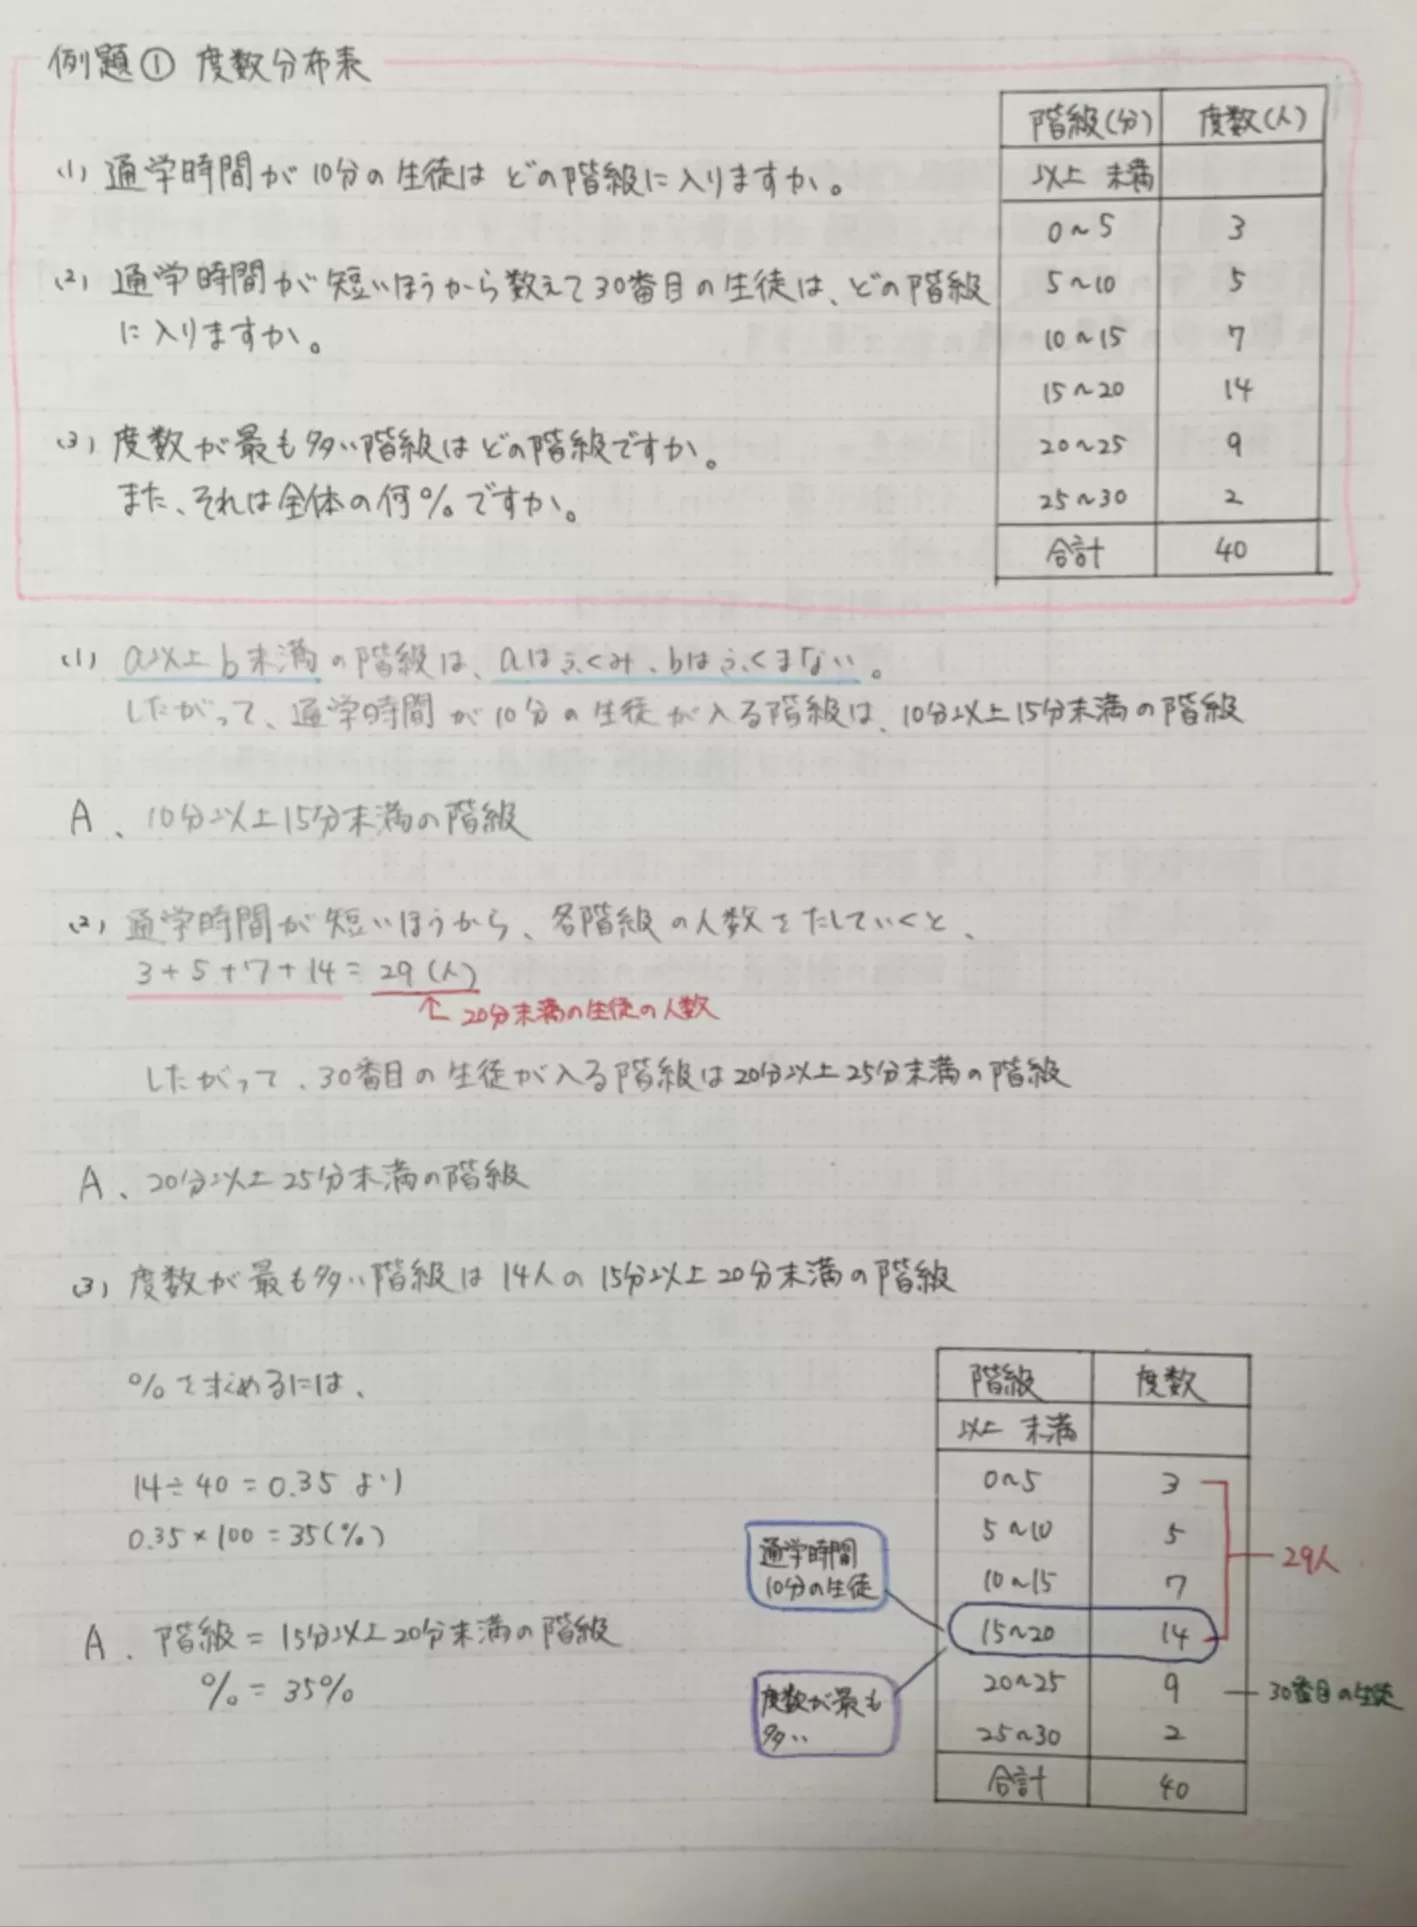 例題① 度数分布表
(1) 通学時間が10分の生徒はどの階級に入りますか。
(2) 通学時間が短いほうから数えて30番目の生徒は、どの階級
に入りますか。
(3) 度数が最も多い階級はどの階級ですか。
また、それは全体の何%ですか。
階級(分) 度数(人)
以上 未満
0~5 3
5~10 5
10~15 7
15~20 14
20~25 9
25~30 2
合計 40
(1) a以上b未満の階級は、aはふくみ、bはふくまない。
したがって、通学時間が10分の生徒が入る階級は、10分以上15分未満の階級
A、10分以上15分未満の階級
(2) 通学時間が短いほうから、各階級の人数をたしていくと、
3+5+7+14=29(人)
↑20分未満の生徒の人数
したがって、30番目の生徒が入る階級は20分以上25分未満の階級
A、20分以上25分未満の階級
(3) 度数が最も多い階級は14人の15分以上20分未満の階級
%を求めるには、
14÷40=0.35より
0.35×100=35(%)
A、階級=15分以上20分未満の階級
%=35%
階級 度数
以上 未満
0~5 3
5~10 5
10~15 7
15~20 14
20~25 9
25~30 2
合計 40
通学時間
10分の生徒
度数が最も
多い
29人
30番目の生徒